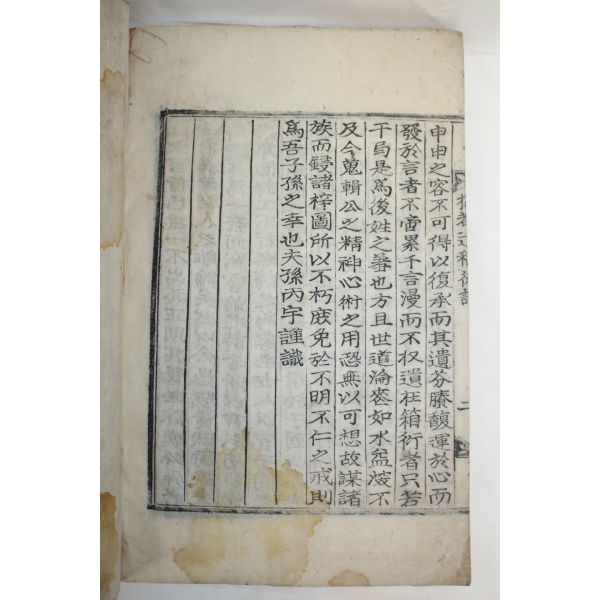 申申之容不可得以復承而其遺芬賸馥運於心而
發於言者不啻累千言漫而不收遺在箱衍者只若
干局是爲後姓之蓍也方且世道淪喪如水益深不
及今蒐輯公之精神心術之用恐無以可想故謀諸
族而鋟諸梓圖所以不朽庶免於不明不仁之戒則
爲吾子孫之幸也夫孫丙宇謹識
遺稿後識
二